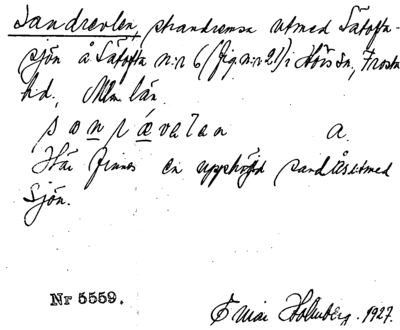 Sandrevlen, strandremsa utmed Sätofta-
sjön å Sätofta n:r 6 (fig. n:r 21) i Hörs sn, Frosta
hd, Mlm län.
sanrævəlan a.
Här finnes en upphöjd sandås utmed
sjön.
Nr 5559.
Holmberg. 1927.